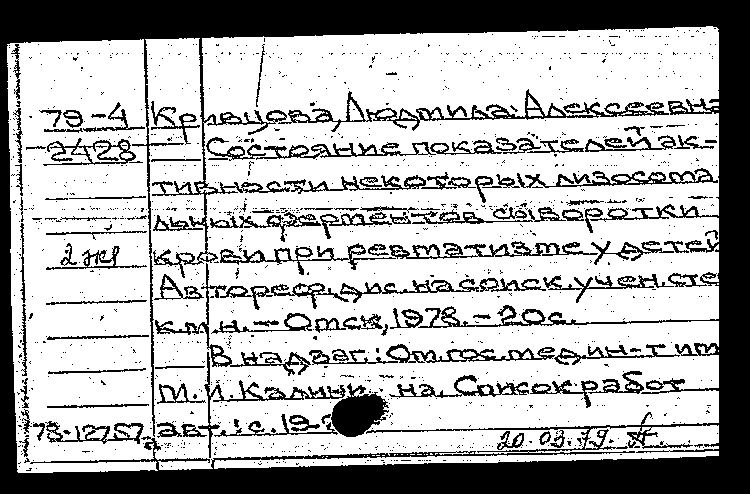 79-4 Кривцова, Людмила Алексеевна
2428 Состояние показателей ак-
тивности некоторых лизосома
льных ферментов сыворотки
2 экз крови при ревматизме у детей
Автореф. дис. на соиск. учен. сте
к.м.н. — Омск, 1978. - 20 с.
В надзаг.: Ом. гос. мед. ин-т им
М.И. Калини на. Список работ
78-12757а авт.: с. 19-
20.03.79.